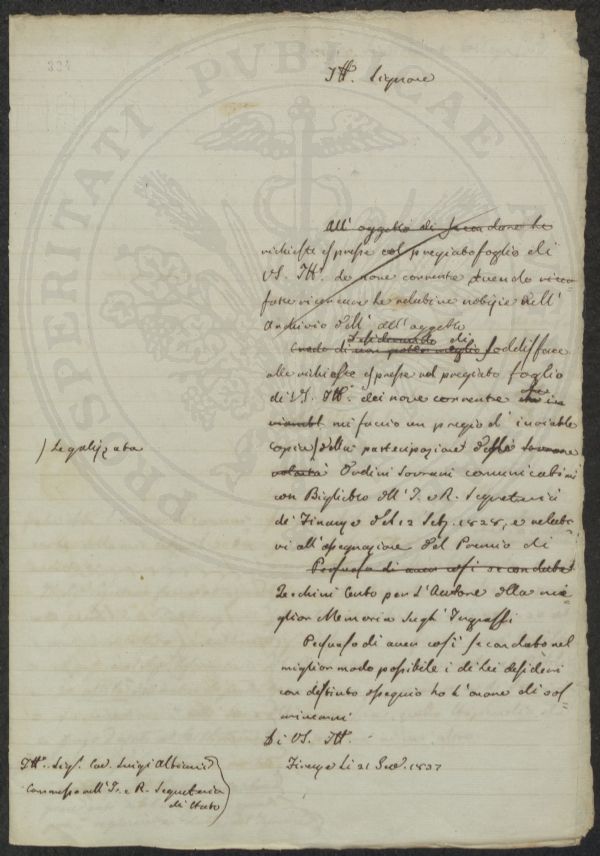 334
Ill. Signore
All' oggetto di secondare le
richieste espresse col pregiato foglio di
VS. Ill. de nove corrente avendo
fatte ricercare le relative notizie dell'
Archivio dell' all' oggetto
Desiderando di
Credo di non poter meglio soddisfare
alle richieste espresse nel pregiato foglio
di VS. Ill. dei nove corrente
mi faccio un pregio d' inviarle
/ Legalizzata
copia / della partecipazione degli Sovrane
volontà Ordini Sovrani comunicatimi
con Biglietto dell' I. e R. Segreteria
di Finanze del 12 Set. 1828, e relati-
vi all' assegnazione del Premio di
Persuaso di aver così secondato
Zecchini Cento per l' Autore della mi-
glior Memoria sugli Ingrassi
Persuaso di aver così secondato nel
miglior modo possibile i di lei desiderj
con distinto ossequio ho l' onore di
Di VS. Ill.
Firenze Li 21 1837
Ill. Sig. Cav. Luigi Albiani
Commesso nell' I. e R. Segreteria
di Stato
PROSPERITATI PUBLICAE